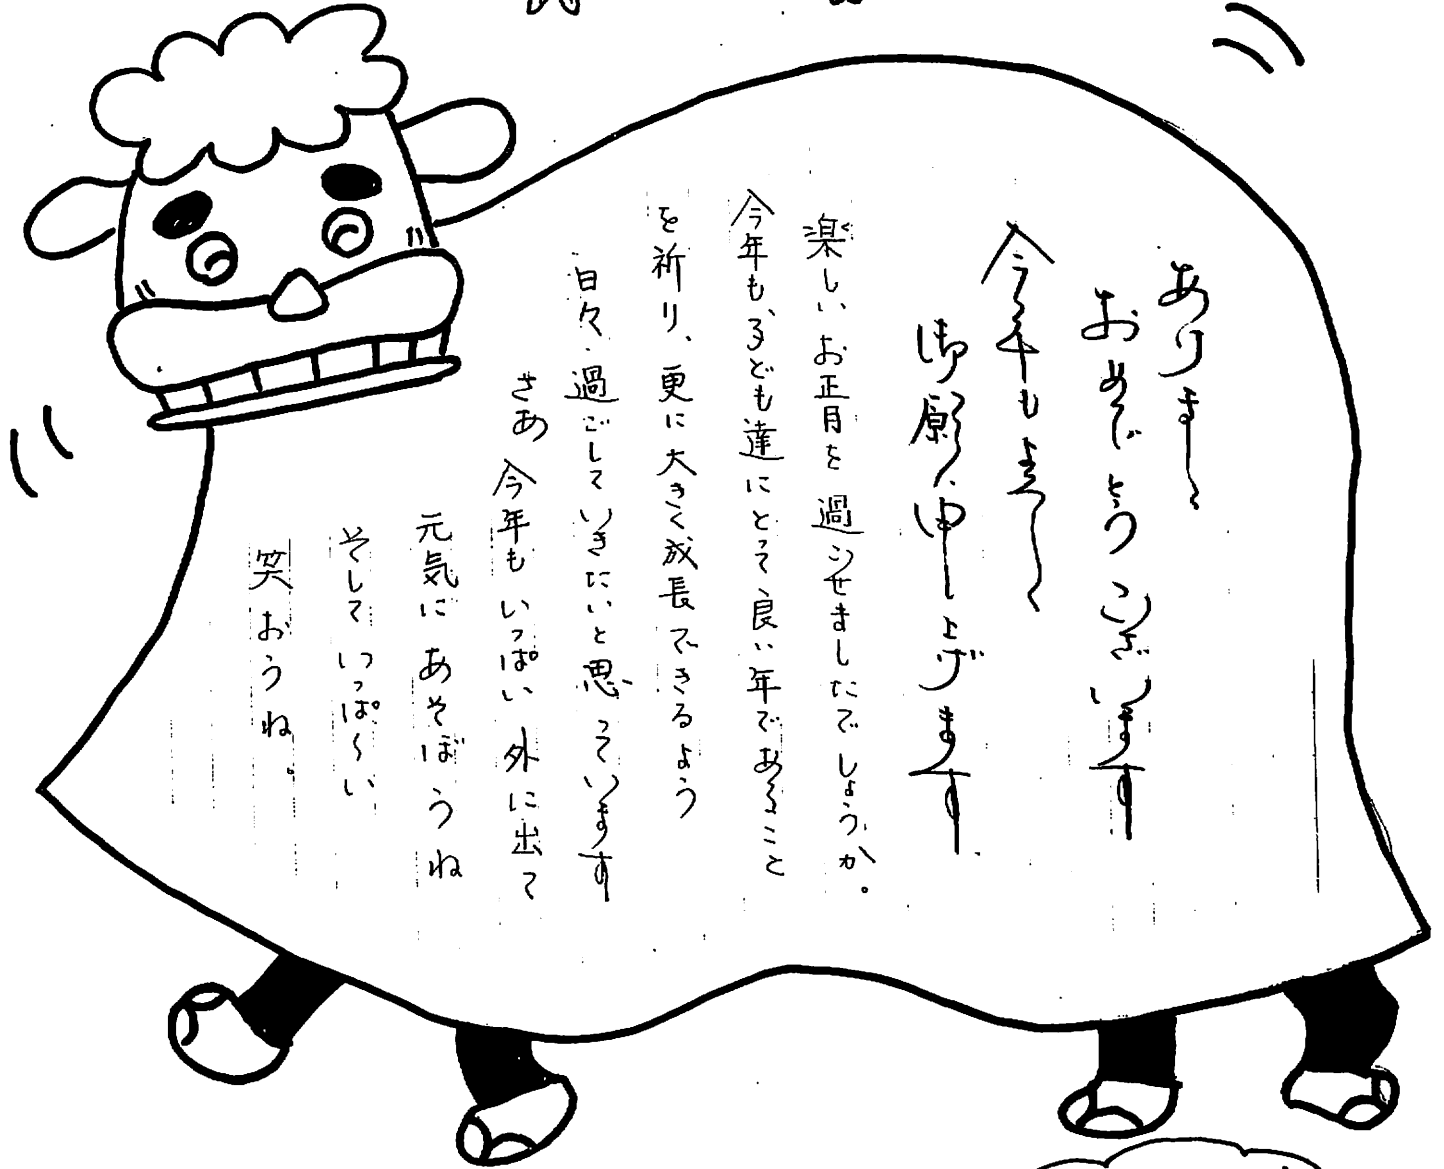 あけまして
おめでとうございます
今年もよろしく
御願い申し上げます
楽しいお正月を過ごせましたでしょうか。
今年も、子ども達にとって良い年であること
を祈り、更に大きく成長できるよう
日々、過ごしていきたいと思っています
さあ今年もいっぱい外に出て
元気にあそぼうね
そしていっぱ〜い
笑おうね。